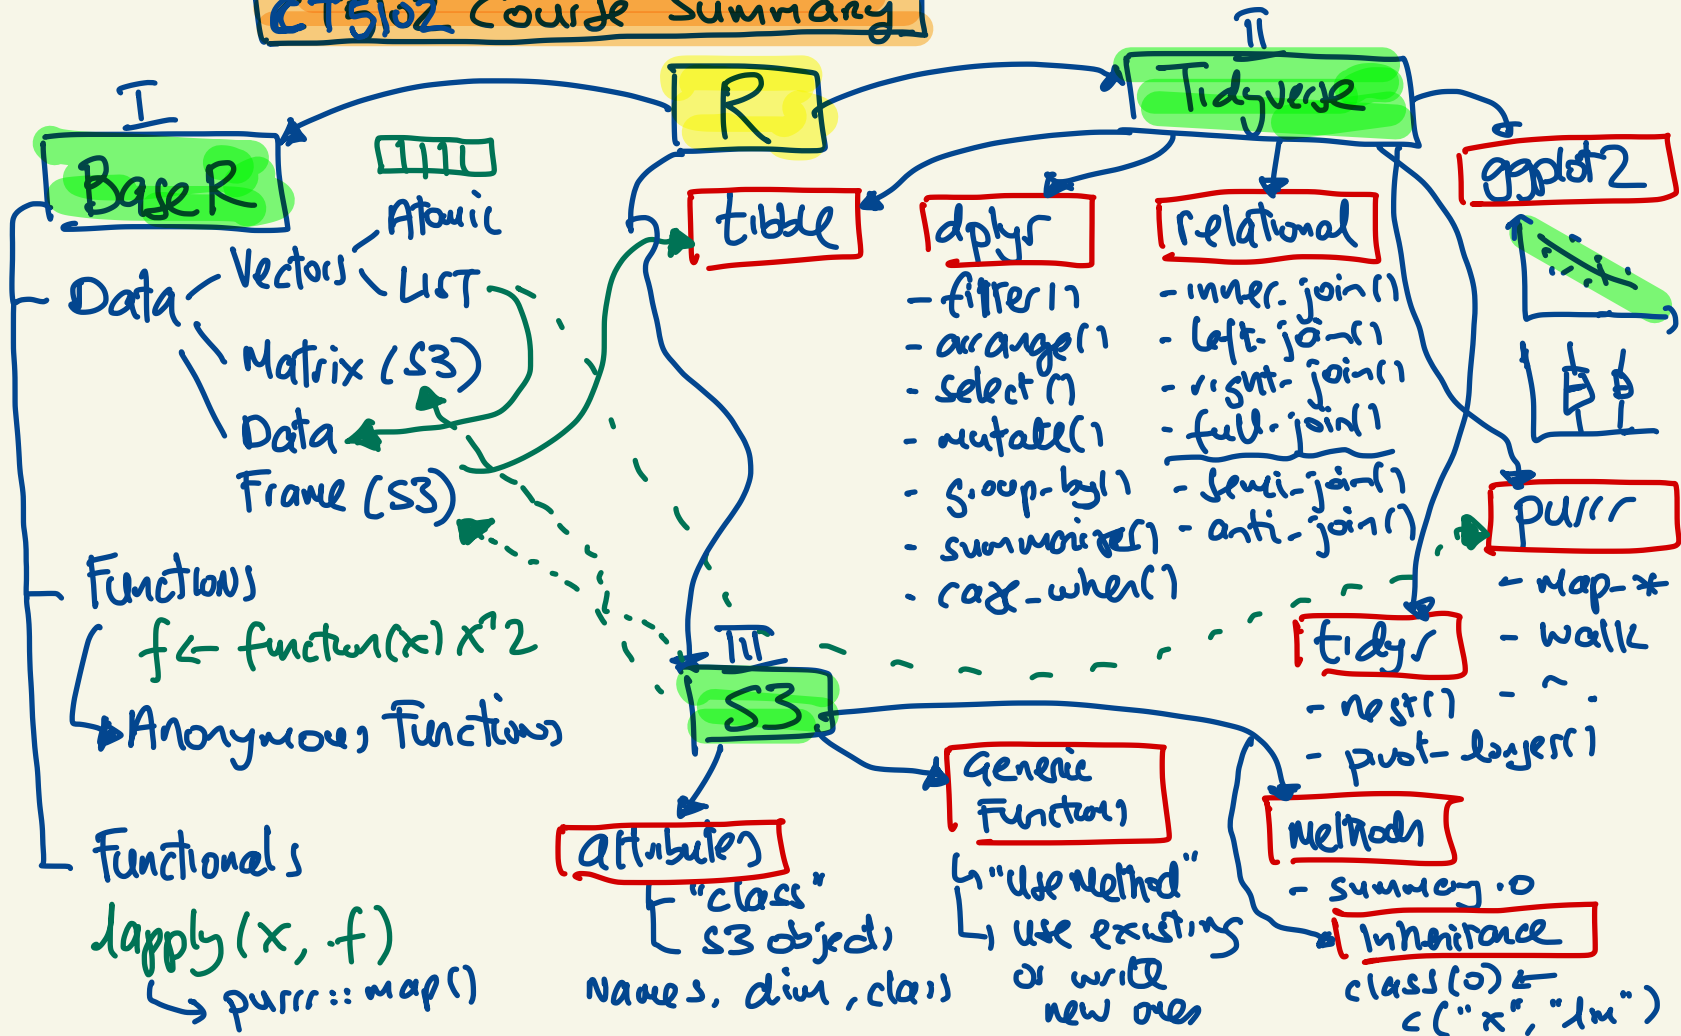 CT5102 Course Summary
R
I
Base R
Data
Vectors
Atomic
LIST
Matrix (S3)
Data
Frame (S3)
Functions
f <- function(x) x^2
Anonymous Functions
Functionals
lapply(x, f)
purrr::map()
II
Tidyverse
tibble
dplyr
- filter()
- arrange()
- select()
- mutate()
- group_by()
- summarise()
- case_when()
relational
- inner_join()
- left_join()
- right_join()
- full_join()
- semi_join()
- anti_join()
ggplot2
purrr
- map_*
- walk
tidyr
- nest()
- pivot_longer()
III
S3
attributes
"class"
S3 objects
Names, dim, class
Generic
Functions
"UseMethod"
use existing
or write
new ones
Methods
- summary.o
Inheritance
class(o) <-
c("x", "lm")